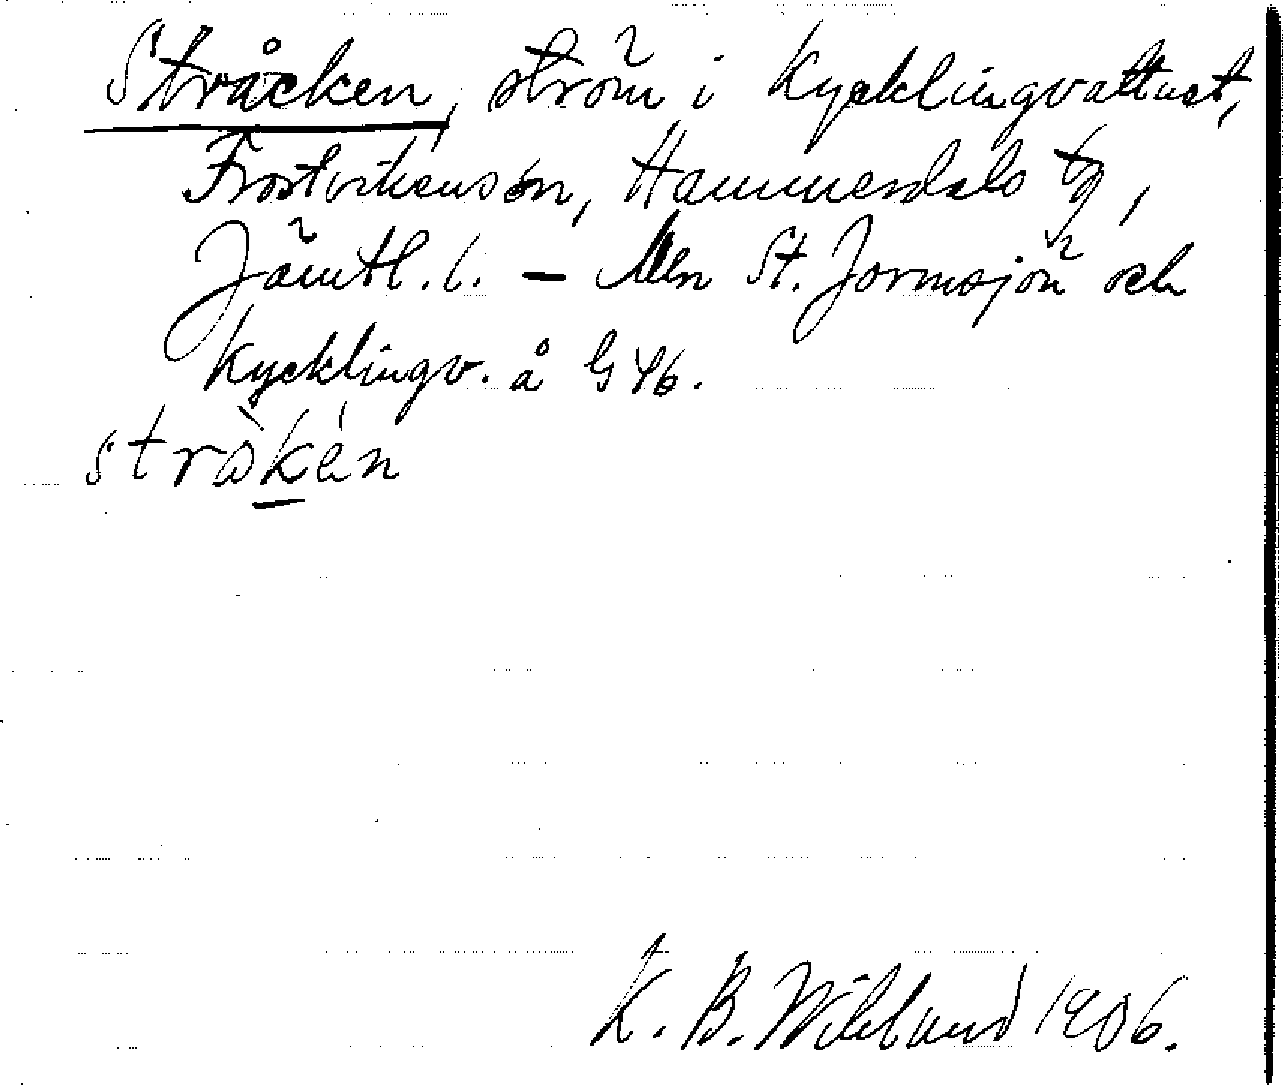 Stråcken, ström i Kycklingvattnet,
Frostvikens sn, Hammerdals tg,
Jämtl. l. – Mln St. Jormsjön och
Kycklingv. å G 46.
stråkèn
K. B. Wiklund 1906.